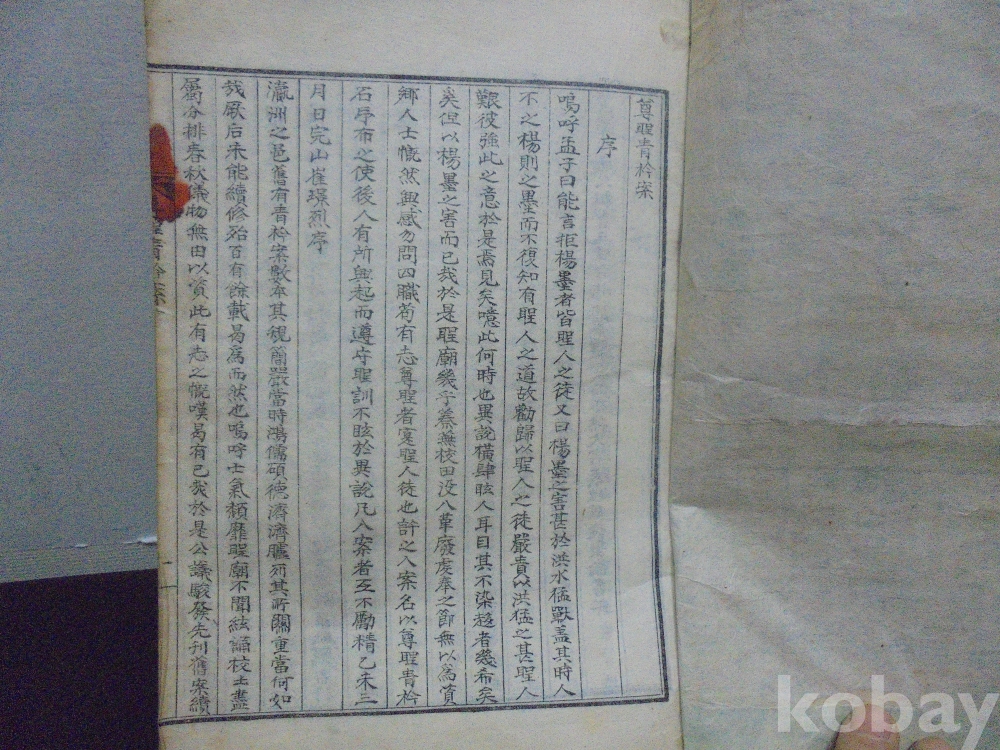 尊聖青衿案
序
嗚呼孟子曰能言拒楊墨者皆聖人之徒又曰楊墨之害甚於洪水猛獸盖其時人
不之楊則之墨而不復知有聖人之道故勸歸以聖人之徒嚴責以洪猛之甚聖人
艱彼強此之意於是焉見矣噫此何時也異說橫肆眩人耳目其不染趍者幾希矣
奚但以楊墨之害而已哉於是聖廟幾乎蓁無校田没入革廢虔奉之節無以爲賁
鄉人士慨然興感勿問四職苟有志尊聖者寔聖人徒也許之入案名以尊聖青衿
石斥布之使後人有所興起而遵守聖訓不眩於異說凡入案者亙不勵精乙未三
月日完山崔璟烈序
瀛洲之邑舊有青衿案數卒其規簡嚴當時鴻儒碩德濟濟臚列其所關重當何如
哉厥后未能續修殆百有餘載曷爲而然也嗚呼士氣頹靡聖廟不聞絃誦校土盡
屬分排春秋儀物無由以賁此有志之慨嘆曷有已哉於是公議駿發先刊舊案續
聖青衿案
一
kobay